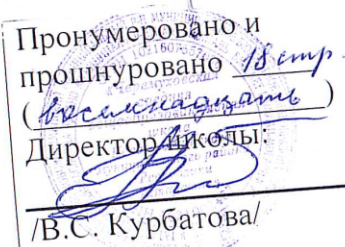 Пронумеровано и
прошнуровано 18 стр.
(восемнадцать)
Директор школы:
/В.С. Курбатова/